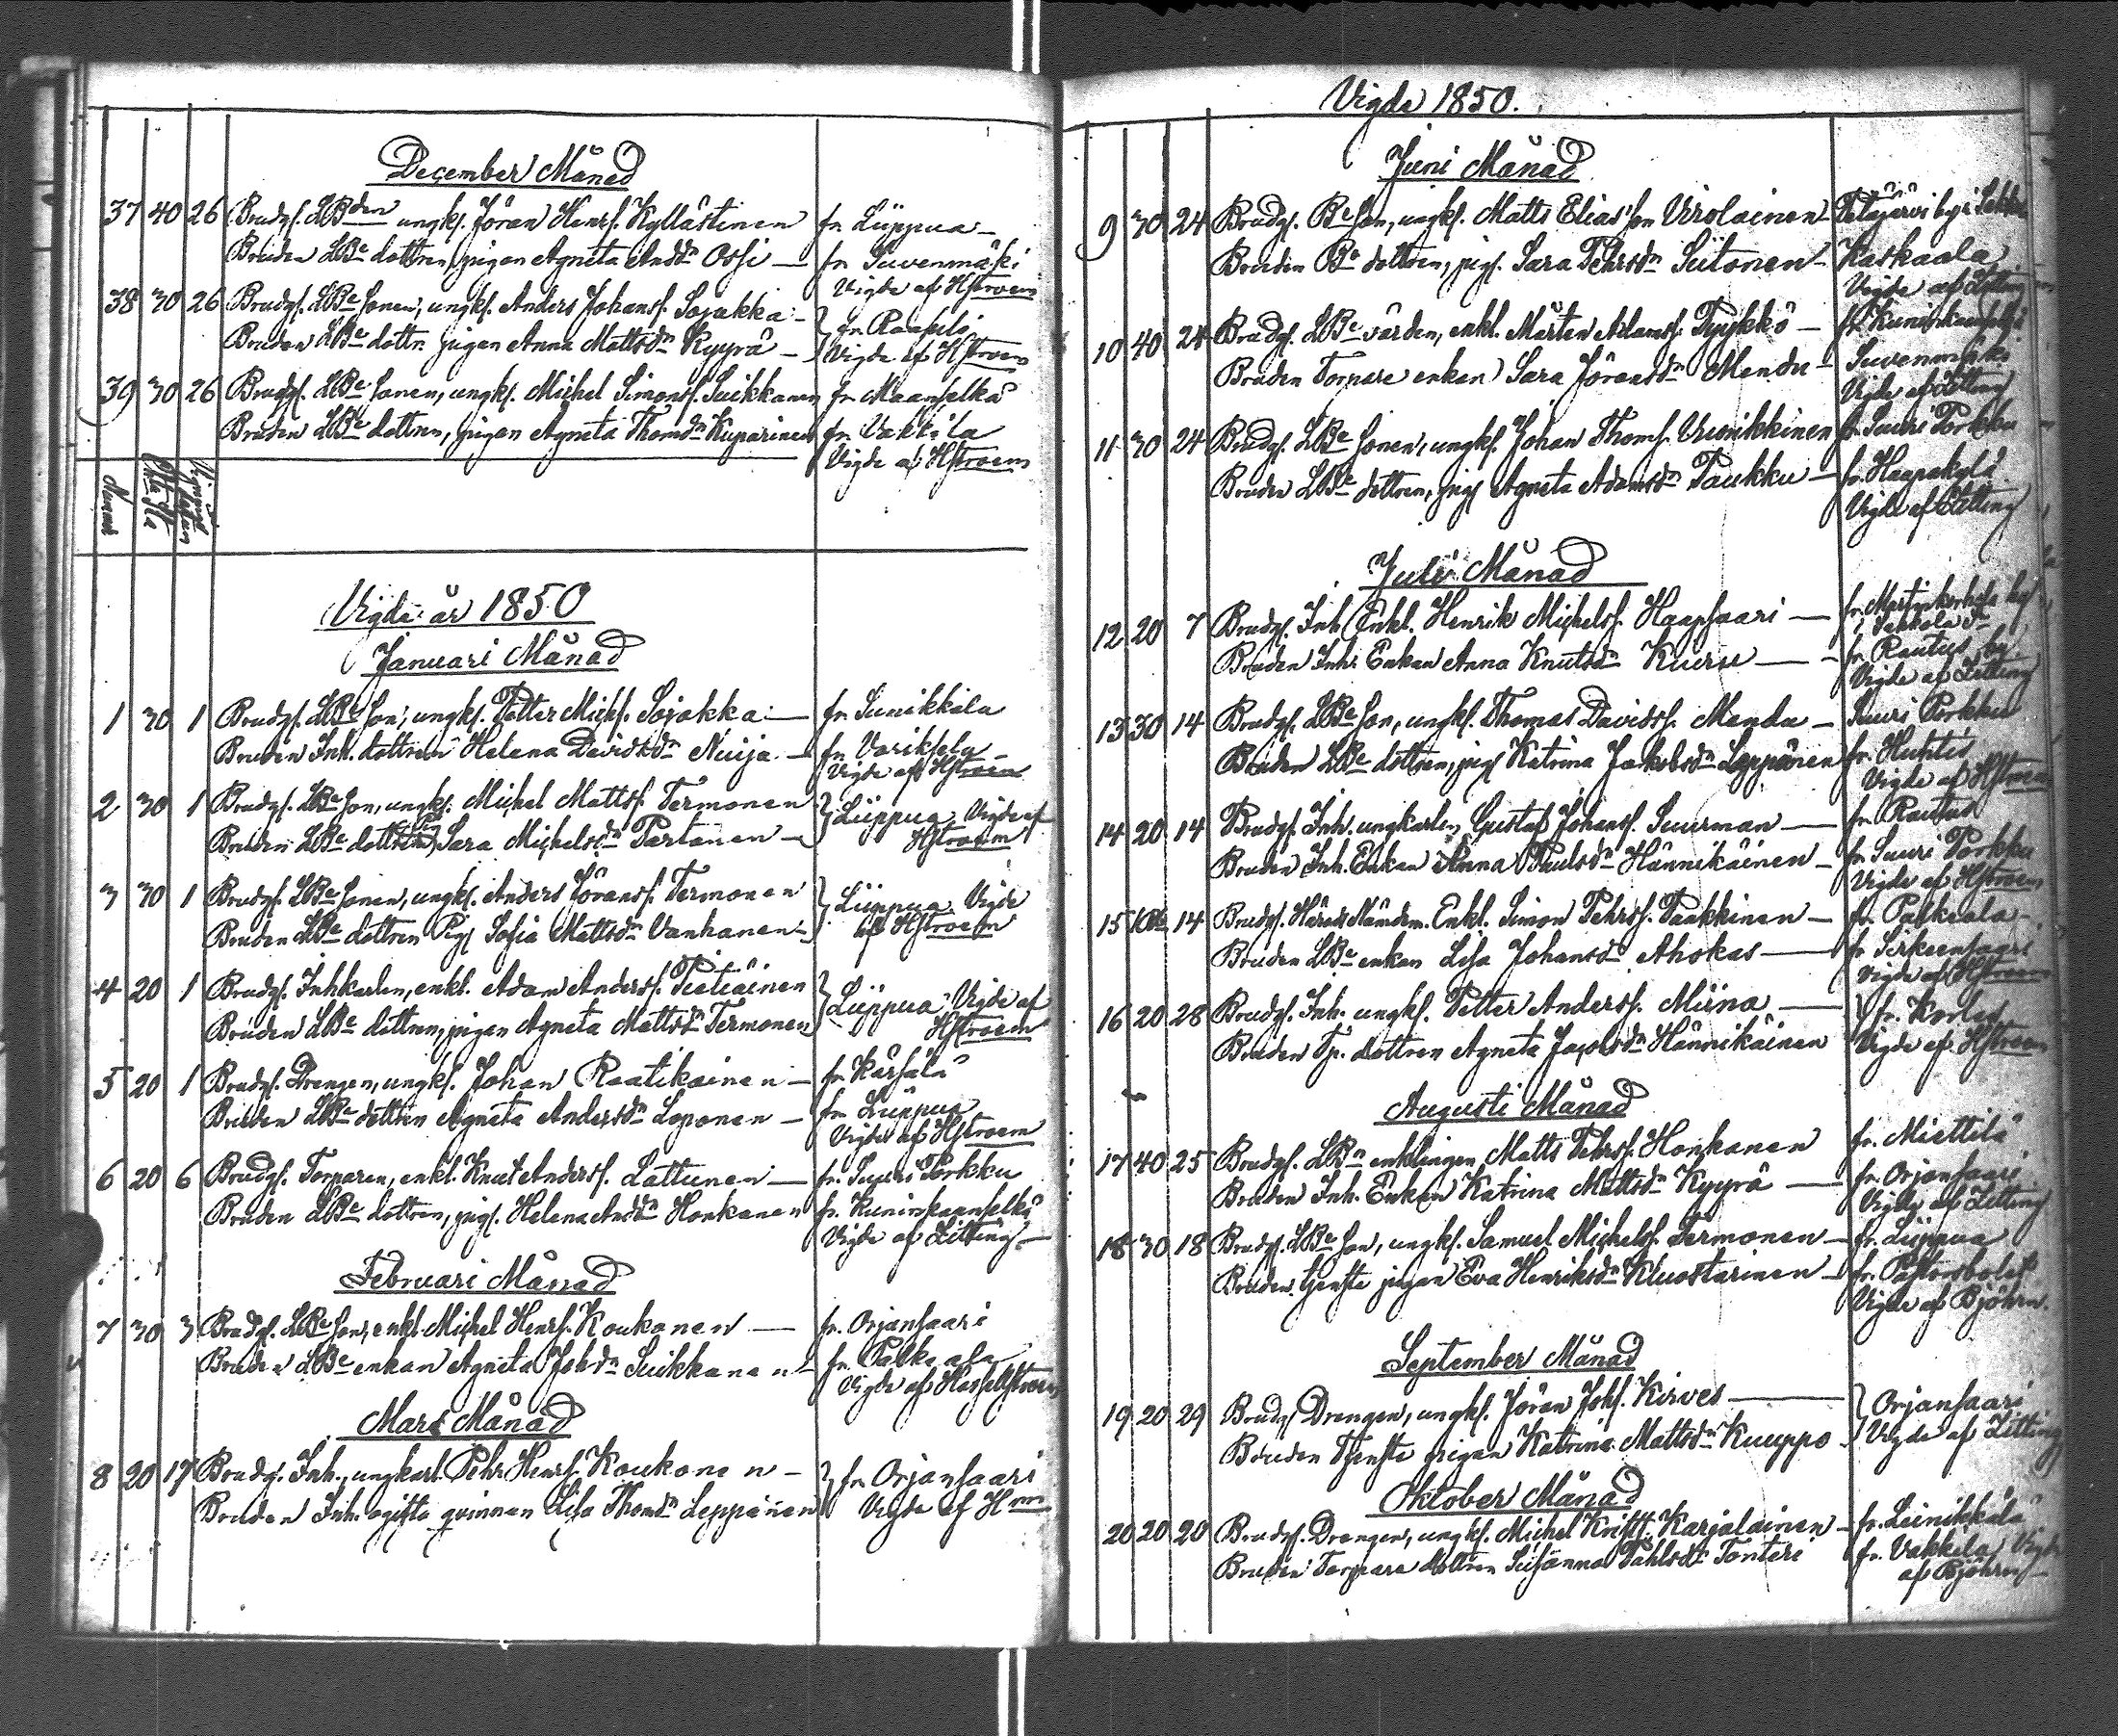 December Månad
37 40 26 Brudg. LBden ungk. Jöran Henrs. Kyllästinen fr. Liippua
Bruden LBe dottren, pigan Agneta Andsdn Ossi fr. Suvenmäki
Vigde af Hstroem
38 30 26 Brudg. LBe sonen, ungk. Anders Johanss. Sojakka fr. Raasuli
Bruden LBe dottr. pigan Anna Mattsdn Kyyrä Vigde af Hstroem
39 30 26 Brudg. LBe sonen, ungk. Michel Simonss. Suikkanen fr. Maanselkä
Bruden LBe dottren, pigan Agneta Thomsdn Kuparinen fr. Vakkila
Vigde af Hstroem
Vigde år 1850
Januari Månad
1 30 1 Brudg. LBe son, ungk. Petter Michs. Sojakka fr. Sunikkala
Bruden Inh. dottren Helena Davidsdn Nuija fr. Variksela
Vigde af Hstroem
2 30 1 Brudg. LBe son, ungk. Michel Mattss. Termonen Liippua Vigde af
Bruden LBe dottren Sara Michelsdn Partanen Hstroem
3 30 1 Brudg. LBe sonen, ungk. Anders Jöranss. Termonen Liippua Vigde
Bruden LBe dottren Pig. Sofia Mattsdn Vanhanen af Hstroem
4 20 1 Brudg. Inhkarlen, enkl. Adam Anderss. Pietiäinen Liippua Vigde af
Bruden LBe dottren, pigan Agneta Mattsdn Termonen Hstroem
5 20 1 Brudg. Drengen, ungk. Johan Raatikainen fr. Karsälä
Bruden LBe dottren Agneta Andersdn Loponen fr. Liippua
Vigde af Hstroem
6 20 6 Brudg. Torparen, enkl. Knut Anderss. Lattunen fr. Suuri Porkku
Bruden LBe dottren, pig. Helena Andsdn Honkanen fr. Kuninkaanselkä
Vigde af Zitting
Februari Månad
7 30 3 Brudg. LBe son, enkl. Michel Henrs. Koukonen fr. Orjansaari
Bruden LBe enkan Agneta Johsdn Suikkanen fr. Palkeala
Vigde af Hasselstroem
Mars Månad
8 20 17 Brudg. Inh., ungkarl. Pehr Henrs. Koukonen fr. Orjansaari
Bruden Inh. ogifta qvinnan Lisa Thomsdn Leppänen Vigde af Hm
Vigde 1850.
Juni Månad
9 30 24 Brudg. Be son, ungk. Matts Eliasson Virolainen Petäjärvi by i
Bruden Be dottren, pig. Sara Pehrsdn Siitonen Kaskaala
Vigde af Zitting
10 40 24 Brudg. LBe värden, enkl. Mårten Adamss. Pyykkö fr. Kuninkaanselkä
Bruden Torpare enkan Sara Jöransdn Mendu Suvenmäki
Vigde af Zitting
11 30 24 Brudg. LBe sonen, ungk. Johan Thoms. Vuonikkinen fr. Suuri Porkku
Bruden LBe dottren, pig Agneta Adamsdn Paukku fr. Haapakylä
Vigde af Zitting
Juli Månad
12 20 7 Brudg. Inh. Enkl. Henrik Michelss. Haapsaari
Bruden Inh. Enkan Anna Knutsdn Kuersu fr. Rautus by.
Vigde af Zitting
13 30 14 Brudg. LBe son, ungk. Thomas Davidss. Mendu Suuri Porkku
Bruden LBe dottren, pig Katrina Jakobsdn Leppänen fr. Huhtis
Vigde af Hstroem
14 20 14 Brudg. Inh. ungkarlen Gustaf Johanss. Suurman fr. Rautus
Bruden Inh. Enkan Anna Paulsdn Hännikäinen fr. Suuri Porkku
Vigde af Hstroem
15 14 Brudg. Härads Nämdem. Enkl. Simon Pehrss. Paakkinen fr. Palkeala
Bruden LBe enkan Lisa Johansdn Ahokas fr. Sirkeensaari
Vigde af Hstroem
16 20 28 Brudg. Inh. ungk. Petter Anderss. Miina fr. Korlea
Bruden Tp. dottren Agneta Jacobsdn Hännikäinen Vigde af Hstroem
Augusti Månad
17 40 25 Brudg. LBn enklingen Matts Pehrss. Honkanen fr. Miettilä
Bruden Inh. Enkan Katrina Mattsdn Kyyrä fr. Orjansaari
Vigde af Zitting
18 30 18 Brudg. LBe son, ungk. Samuel Michelss. Termonen fr. Liippua
Bruden tjenste pigan Eva Henriksdn Kluostarinen fr. Pastorsbolet
Vigde af Björkn.
September Månad
19 20 29 Brudg. Drengen, ungk. Jöran Johs. Kirves Orjansaari
Bruden Tjenste pigan Katrina Mattsdn Kuuppo Vigde af Zitting
Oktober Månad
20 20 20 Brudg. Drengen, ungk. Michel Krists. Karjalainen fr. Leinikkälä
Bruden Torpare dottren Susanna Pahlsdn Tonteri fr. Vakkila Vigde
af Björkn